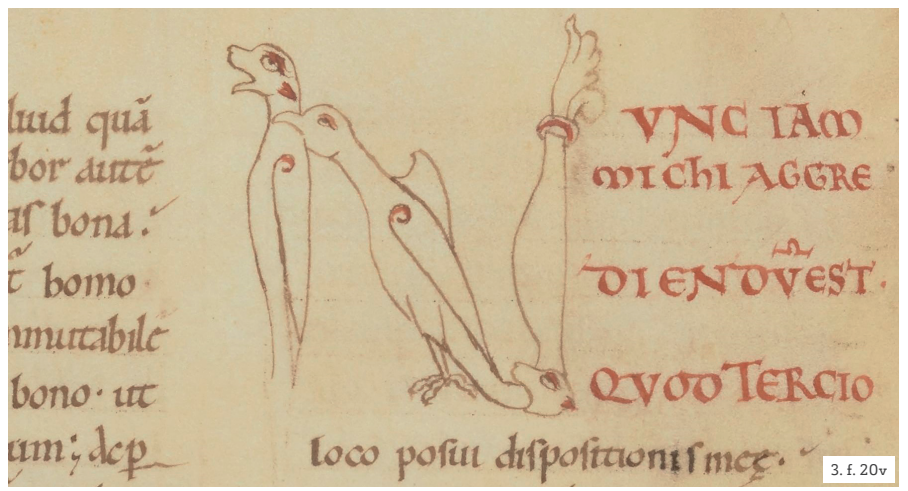 luıd quã
bor autẽ
as bona :
bomo
nmutabile
bono · ut
um ; Ac ꝑ
N
VNC IAM
MICHI AGGRE
DIENDṼEST ·
QVOD TERCIO
loco posui dispositionis meę ·
3. f. 20v